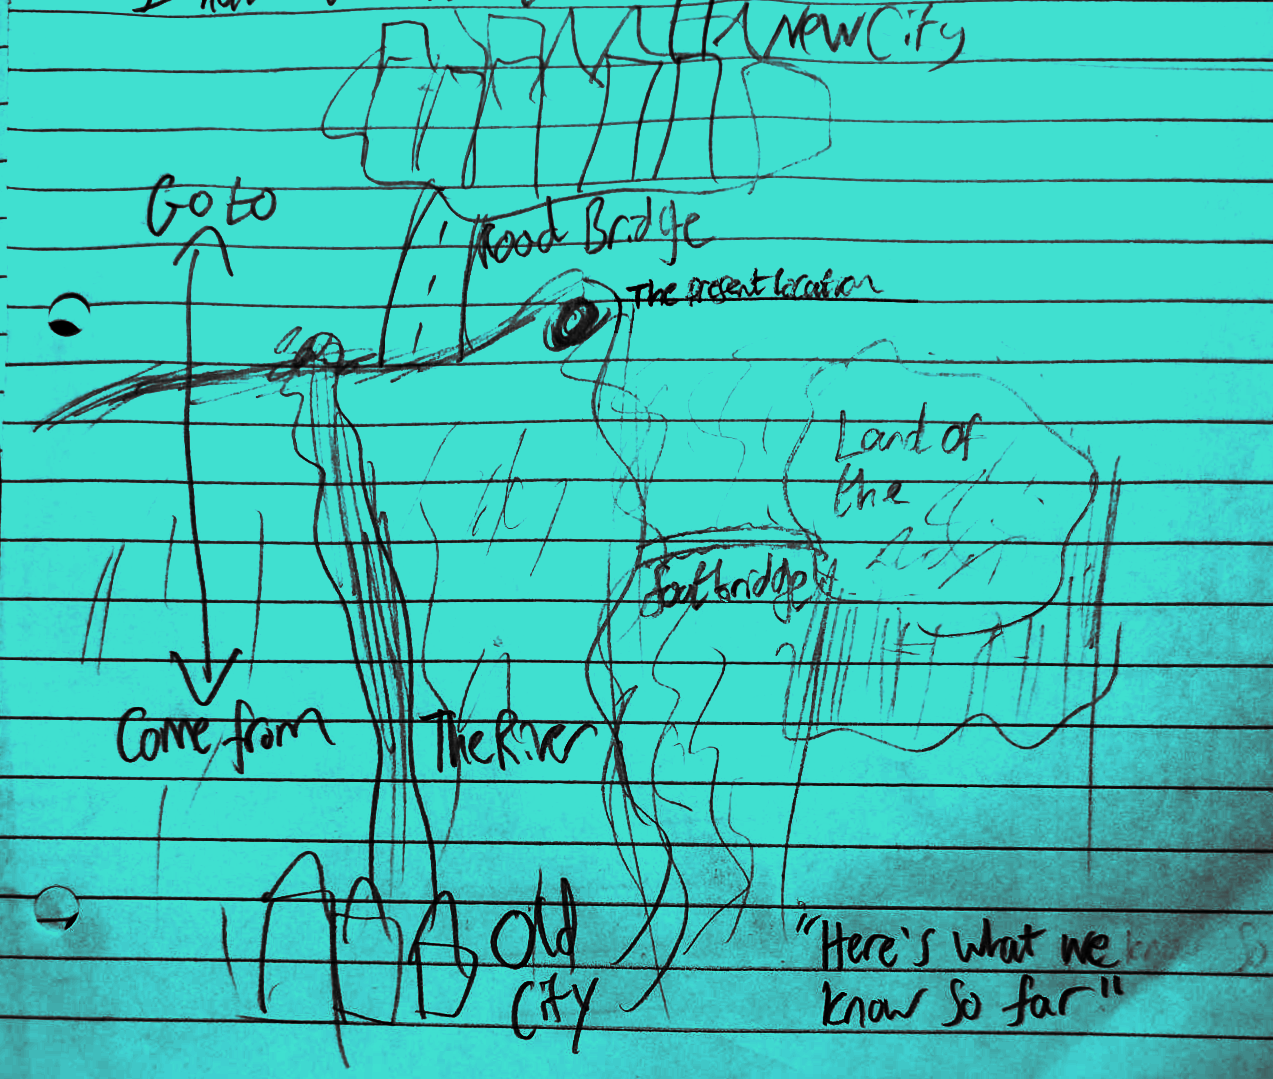 New City
Go to
Road Bridge
The present location
Land of
the
footbridge
Come from
The River
Old
City
"Here's what we
know so far"